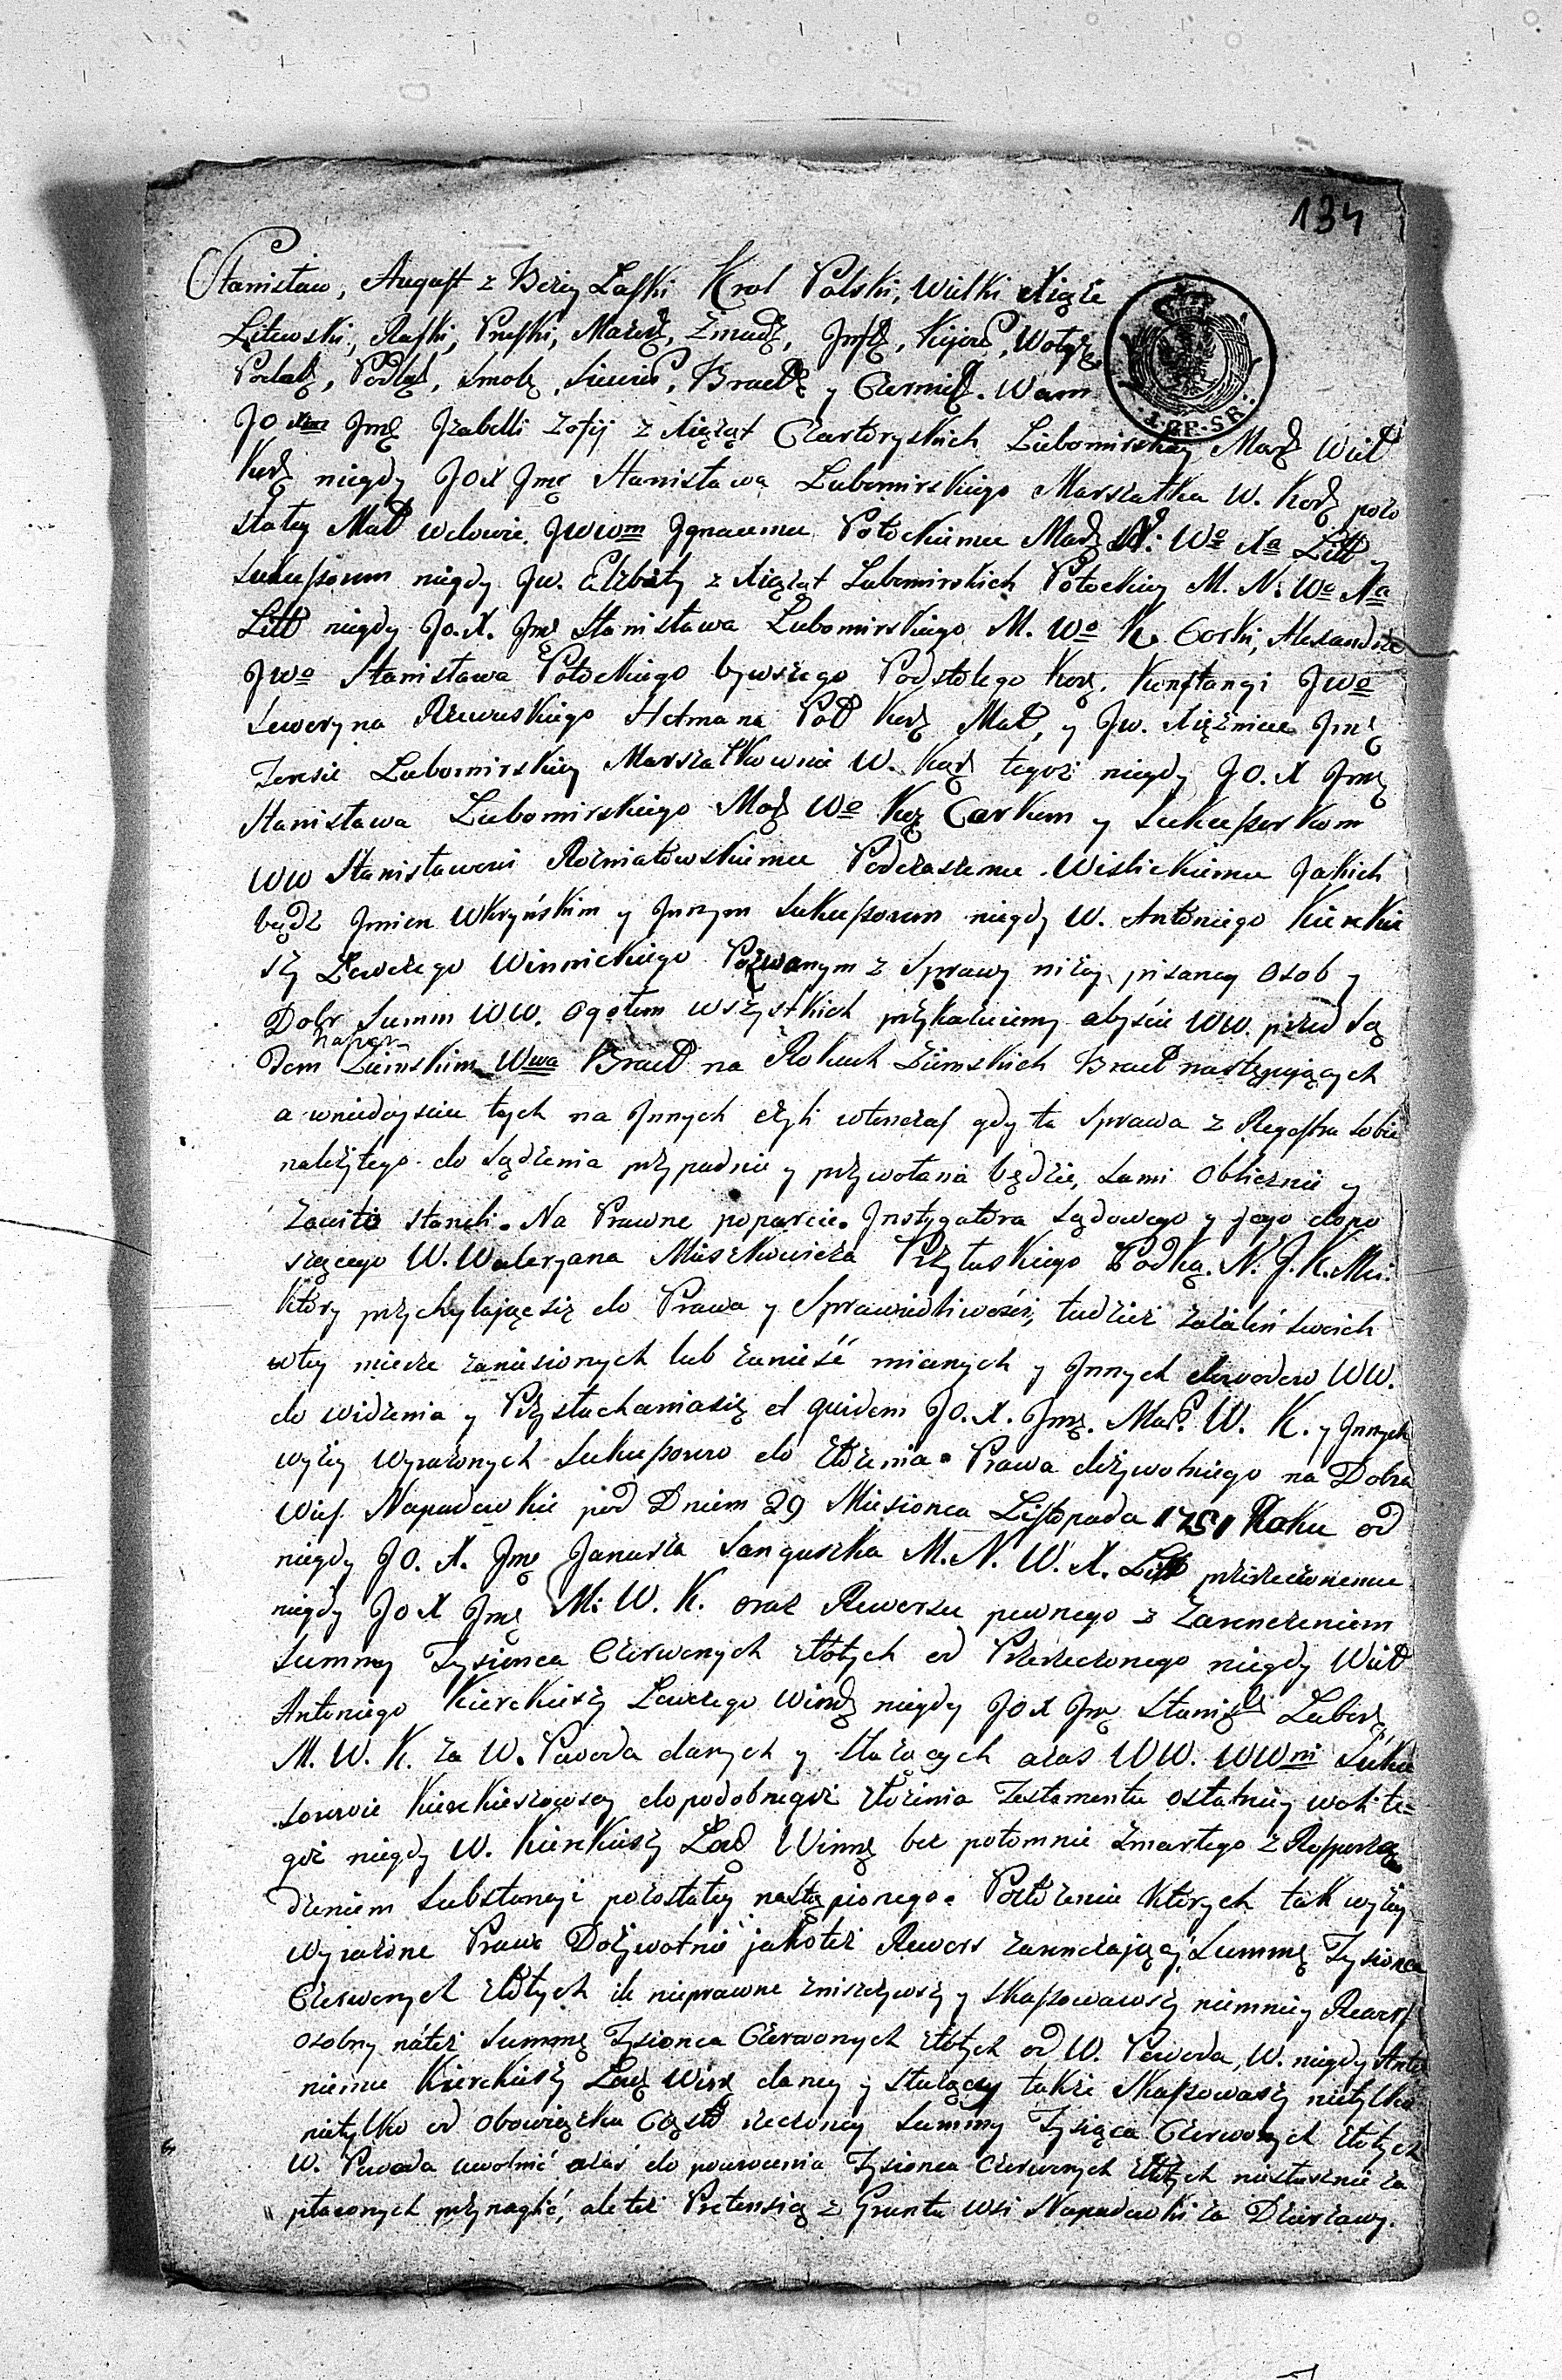 134
Stanisław, August z Bożey Łaski Krol Polski, Wielki Xiąże
Litewski, Ruski, Pruski, Mazow, Zmudz, Jnfl, Kijow, Wołyn
Podol, Podlas, Smol, Siewier, Bracł y Czernieh. Wam
Jo Xna Jmę Jzabelli Zofij z Xiążąt Czartoryskich Lubomirskiey Marsz Wiel
Kor niegdy JOX Jmę Stanisława Lubomirskiego Marszałka W. Kor pozo
stałey Małł wdowie. JWWom Jgnacemu Potockiemu Mar N: Wo Xa Litt y
Sukcessorom niegdy Jw. Elzbiety z Xiążąt Lubomirskich Potockiey M. N: Wo Xa
Litt niegdy Jo. X. Jmę Stanisława Lubomirskiego M. Wo K. Corki, Alexandrze
Jwo Stanisława Potockiego bywszego Podstolego Kor. Konstancyi Jwo
Seweryna Rzewuskiego Hetmana Pol Kor Mał, y Jw. Xiężnicce Jmę
Teresie Lubomirskiey Marszałkownie W. Kor tegoz niegdy JO. X Jmę
Stanisława Lubomirskiego Mar Wo Ko Corkom y Sukcessorkom
WW Stanisławowi Rozniatowskiemu Podczaszemu Wislickiemu Jakich
będz Jmion Wkryńskim y Jnnym Sukcessorom niegdy W. Antoniego Kierkie
szy Łowczego Winnickiego Pozwanym z Sprawy niżey pisaney Osob y
Dobr Summ WW. Ogołem wszystkich przykazuiemy abyście WW. przed Są
dem Ziemskim Wwa Bracł na Rokach Ziemskich Bracł następujących
a wniedoyściu tych na Jnnych czyli wtenczas gdy ta Sprawa z Regestru sobie
należytego do sądzenia przypadnie y przywołana będzie, sami Oblicznie y
Zawito staneli. Na Prawne poparcie Jnstygatora Sądowego y Jego dono
szącego W. Waleryana Muszkowicza Przyłuskiego Podko. N. J. K. Mci.
Ktory przychylając się do Prawa y Sprawiedliwości, tudziez załaleń swoich
wtey mierze zaniesionych lub zanieść mianych y Jnnych dowodow WW.
do widzenia y Przysłuchania się et quidem JO. X. Jmę. Mar. W. K. y Jnnych
wyżey wyrażonych Sukcessorow do złożenia Prawa dożywotniego na Dobra
Wieś Napadowkie pod Dniem 29 Miesionca Listopada 1751 Roku od
niegdy JO. X. Jmę Janusza Sanguszka M. N. W. X. Litt przerzeczonemu
niegdy Jo X Jmę M: W. K. oraz Rewersu pewnego z Zaręczeniem
Summy Tysionca Czerwonych złotych od Przerzeczonego niegdy Wiel
Antoniego Kierkieszy Łowczego Winn niegdy JOX Jmę Stanisł Lubor
M. W. K. za W. Powoda danych y służących azas WW. WWni Sukce
sorowie Kierkieszowscy do podobnegoz złożenia Testamentu ostatniey woli te=
goz niegdy W. Kierkieszy Łow Winn bez potomnie zmarłego z Rosporzą
dzeniem Substancyi pozostałey nastąpionego. Po złożeniu Ktorych tak wyżey
wyrażone Prawo Dożywotnie jako też Rewers zaręczający Summę Tysionca
Czerwonych złotych ile nieprawne zniszczywszy y skassowawszy niemniey Rewers
osobny na też Summę Tysionca Czerwonych złotych od W. Powoda, W. niegdy Anto
niemu Kierkieszy Łow Winn daney y służący także skassowawszy nietylko
nietylko od obowiązku często rzeczoney Summy Tysiąca Czerwonych złotych
W. Powoda uwolnić azas do powrocenia Tysionca Czerwonych złotych niesłusznie za
płaconych przynaglić, ale też Pretensią z Gruntu wsi Napadowki za Dzierzawy.